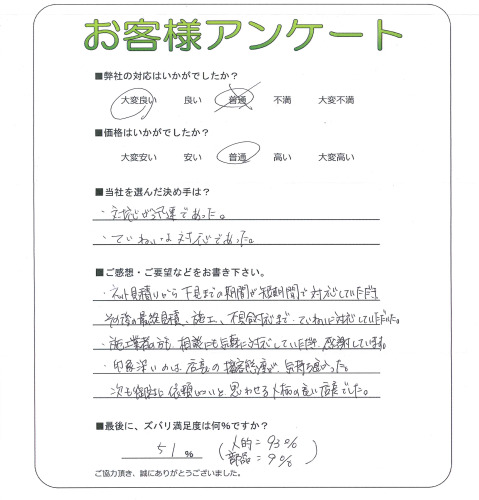 お客様アンケート
■弊社の対応はいかがでしたか？
大変良い 良い 普通 不満 大変不満
■価格はいかがでしたか？
大変安い 安い 普通 高い 大変高い
■当社を選んだ決め手は？
・対応が迅速であった。
・ていねいな対応であった。
■ご感想・ご要望などをお書き下さい。
・ネット見積りから下見までの期間が短期間で対応していただき、
その後の最終見積、施工、不具合対応まで、ていねいに対応していただいた。
・施工業者の方も相談にも気軽に対応していただき、感謝しています。
・印象深いのは店長の接客態度が、気持ち良かった。
次も御社に依頼したいと思わせる人柄の良い店長でした。
■最後に、ズバリ満足度は何％ですか？
51 % (人的＝93% 部品＝9%)
ご協力頂き、誠にありがとうございました。